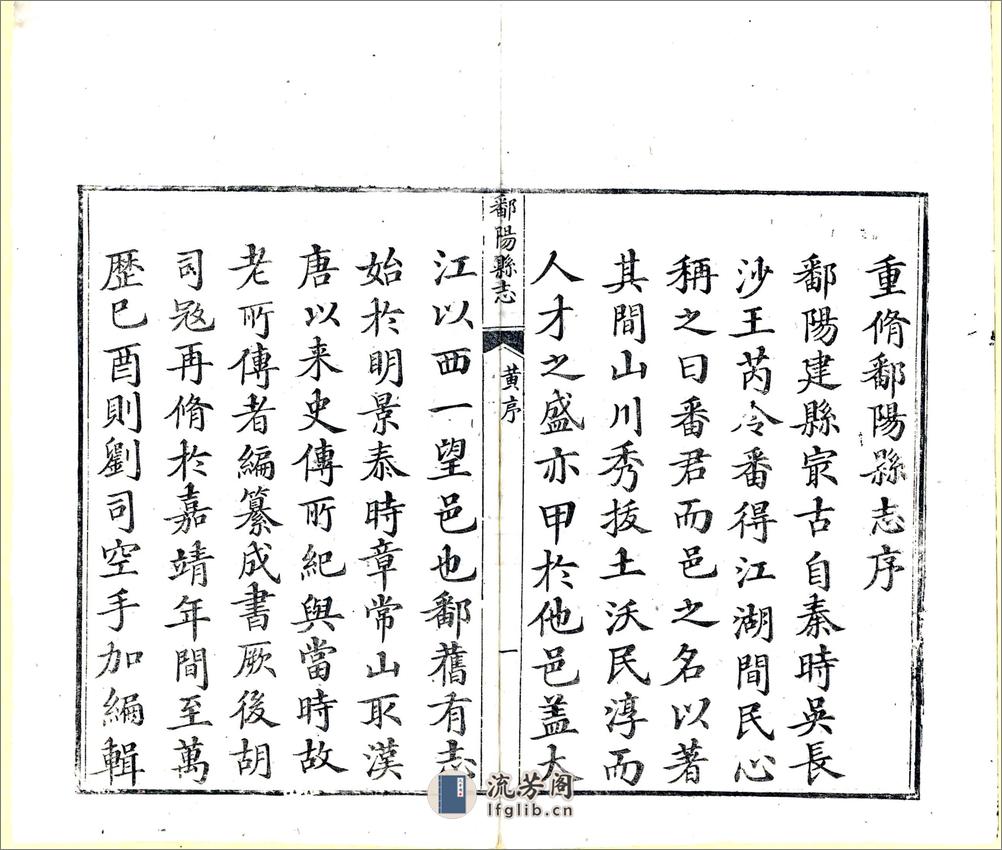 重脩鄱陽縣志序
鄱陽建縣冣古自秦時吳長
沙王芮令番得江湖間民心
稱之曰番君而邑之名以著
其間山川秀拔土沃民淳而
人才之盛亦甲於他邑盖大
鄱陽縣志
黄序
一
江以西一望邑也鄱舊有志
始於明景泰時章常山取漢
唐以来史傳所紀與當時故
老所傳者編纂成書厥後胡
司冦再脩於嘉靖年間至萬
歷巳酉則劉司空手加編輯
流芳阁
lfglib.cn